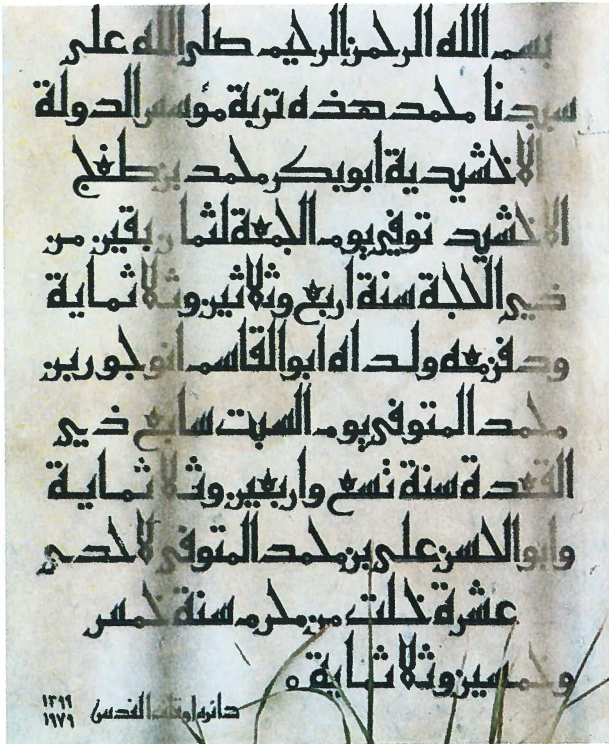 بسم الله الرحمن الرحيم صلى الله على
سيدنا محمد هذه تربة مؤسس الدولة
الاخشيدية ابو بكر محمد بن طغج
الاخشيد توفي يوم الجمعة لثمان بقين من
ذي الحجة سنة اربع وثلاثين وثلاثماية
ودفن معه ولداه ابو القاسم انوجور بن
محمد المتوفي يوم السبت سابع ذي
القعدة سنة تسع واربعين وثلاثماية
وابو الحسن علي بن محمد المتوفى لاحدى
عشرة خلت من محرم سنة خمس
وخمسين وثلاثماية
دائرة اوقاف القدس
١٣٩٩
١٩٧٩